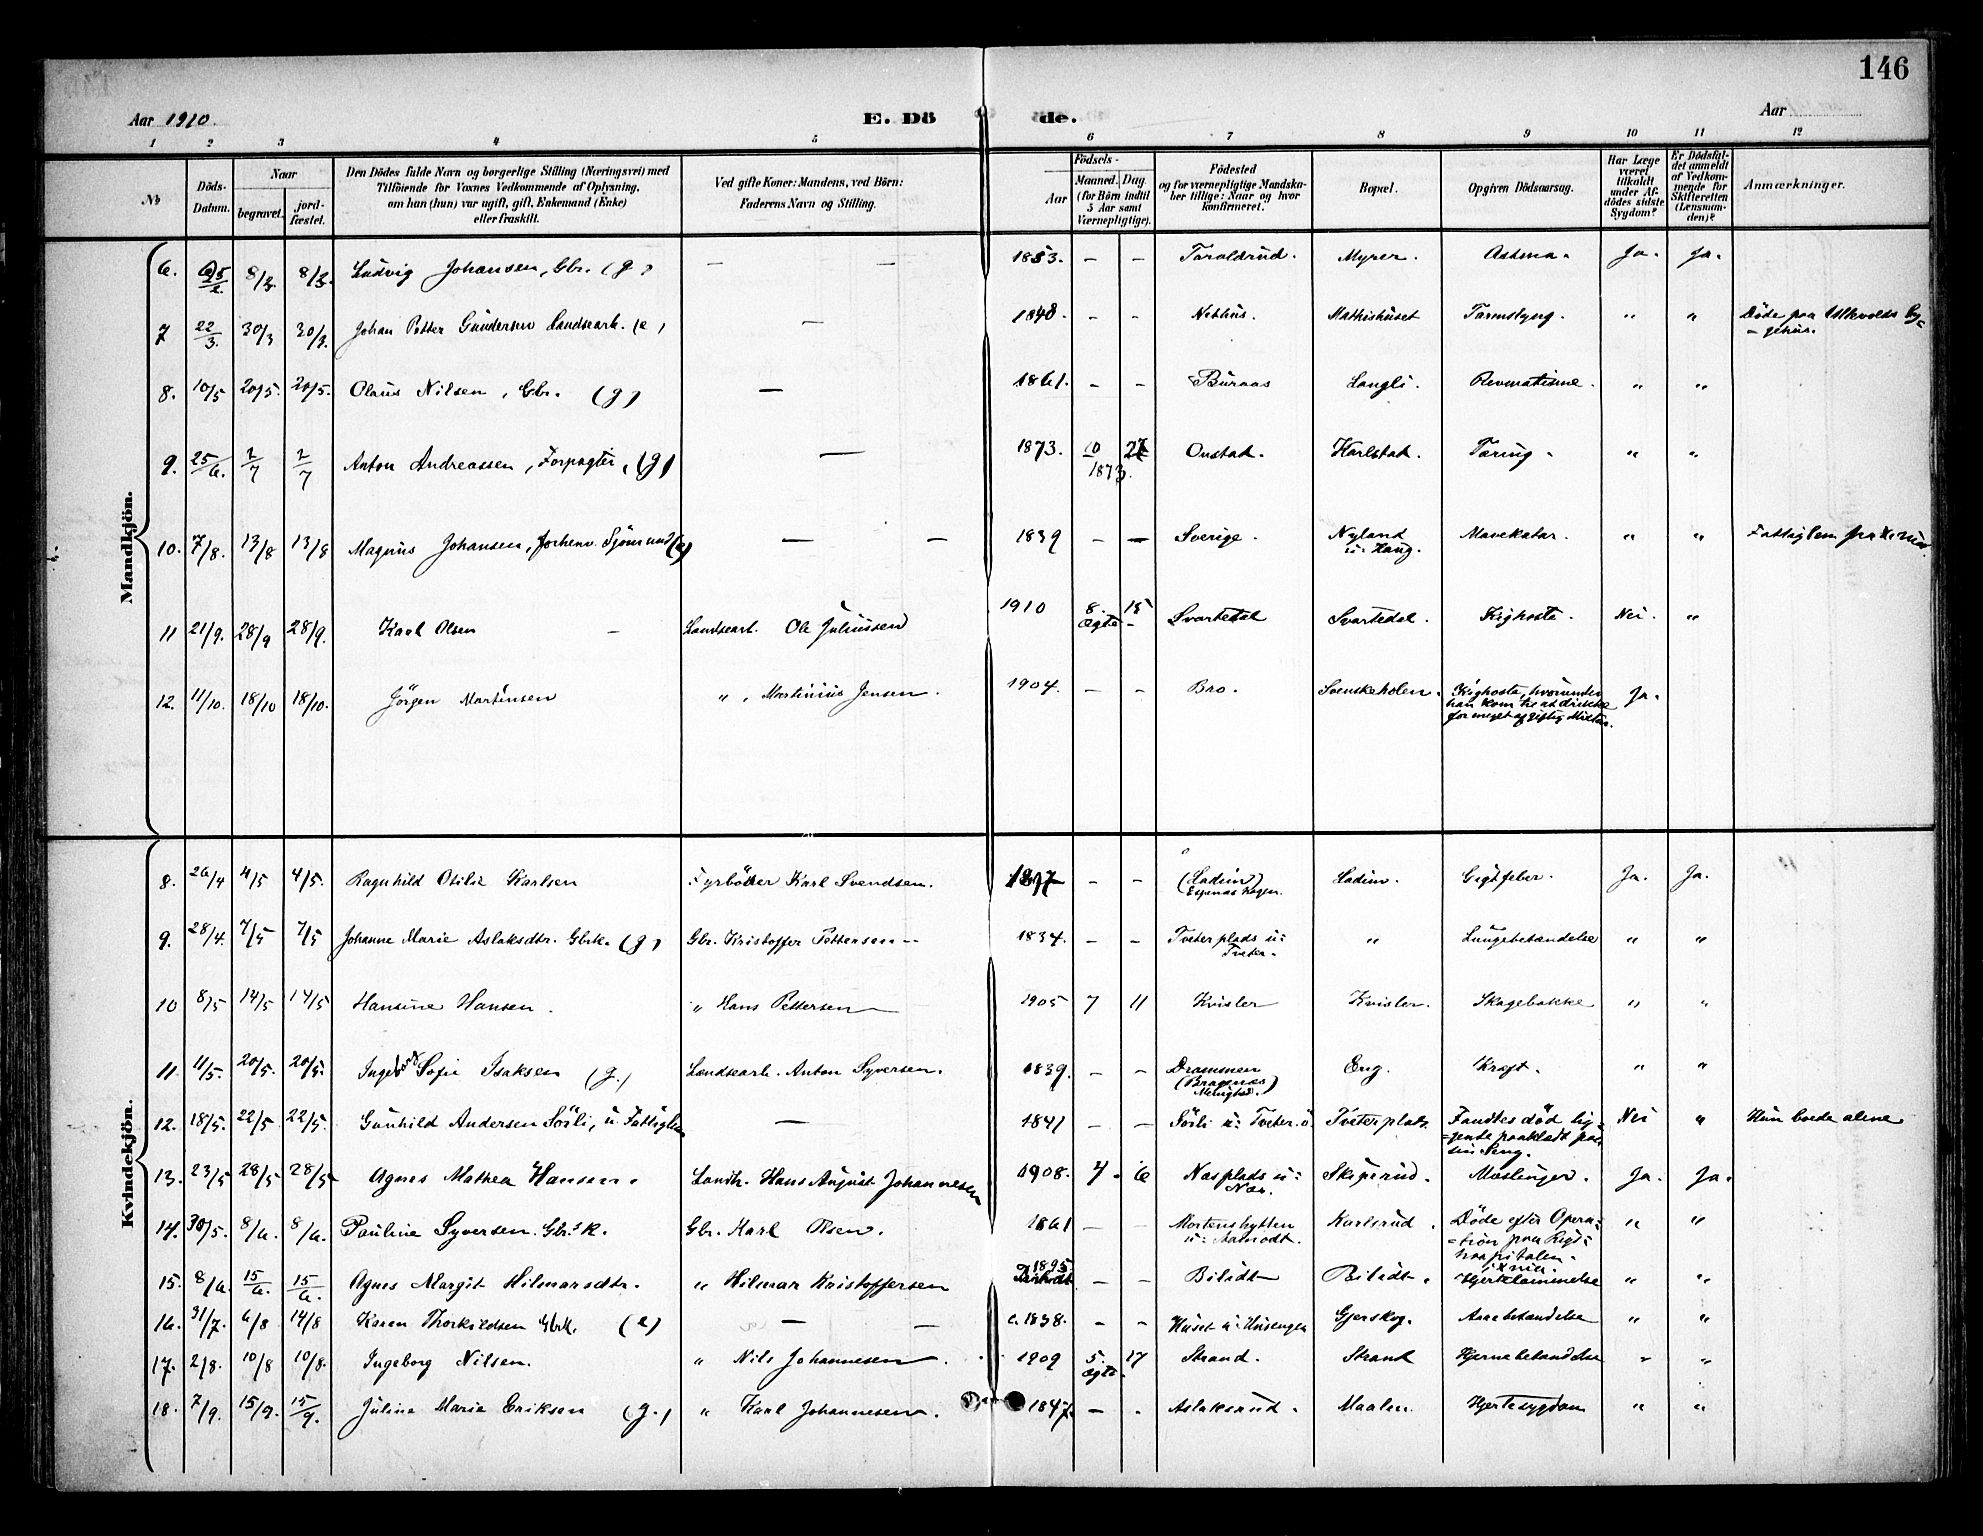 146
Aar 1910. E. Dö de. Aar
1 2 3 4 5 6 7 8 9 10 11 12
No
Döds-Datum.
Naar
begravet.
jord-fæstet.
Den Dödes fulde Navn og borgerlige Stilling (Næringsvei) med
Tilföiende for Voxnes Vedkommende af Oplysning,
om han (hun) var ugift, gift, Enkemand (Enke)
eller fraskilt.
Ved gifte Koner: Mandens, ved Börn:
Faderens Navn og Stilling.
Födsels-
Aar
Maaned. Dag
(for Börn indtil
5 Aar samt
Værnepligtige).
Födested
og for værnepligtige Mandska-
ber tillige: Naar og hvor
konfirmeret.
Bopæl.
Opgiven Dödsaarsag.
Har Læge
været
tilkaldt
under Af-
dödes sidste
Sygdom?
Er Dödsfal-
det anmeldt
af Vedkom-
mende for
Skifteretten
(Lensman-
den)?
Anmærkninger.
Mandkjön.
6. 8/3. 8/3. Ludvig Johansen, Gbr. (g) — — 1853. – – Taraldrud. Myrer. Astma. Ja. Ja.
7 22/3. 30/3 30/3. Johan Petter Gundersen Landsearb. (e) — 1848. – – Nebhus. Mathishuset Tarmslyng. " " Döde paa Ullevolds Sy-
=gehus.
8. 10/5 20/5. 20/5. Olaus Nilsen, Gbr. (g) — 1861. – – Buraas Langli. Revmatisme. " "
9. 25/6. 2/7 2/7 Anton Andreassen, Forpagter, (g) — 1873. 10 Onstad. Karlstad. Tæring. " "
1873.
10. 7/8. 13/8 13/8 Magnus Johansen, forhenv. Sjömand (e) — — 1839 – — Sverige. Nyland Mavekatar. " "
u: Haug.
11 21/9. 28/9 28/9. Karl Olsen – Landsearb. Ole Juliussen 1910 8. 15 Svartedal Svartedal. Kighoste. Nei. "
Ægte –
12. 11/10. 18/10 18/10. Jörgen Martinsen " , Martinius Jensen. 1904. – – Bro. Svenskeholen. Kighoste, hvorunder Ja.
han kom til at drikke
for meget af giftig Mixtur.
Kvindekjön.
8. 26/4 4/5 4/5. Ragnhild Otilie Karlsen Fyrböder Karl Svendsen. – – (Ladim) Ladim. Gigtfeber. Ja. Ja.
9. 28/4. 7/5 7/5 Johanne Marie Aslaksdtr. Gbrk. (g) Gbr. Kristoffer Pettersen 1834. – – Tveter plads u: " Lungebetændelse " "
Tveter.
10 8/5 14/5 14/5 Hansine Hansen. " Hans Pettersen — 1905 7 11 Kvisler Kvisler. Skogebakke " "
11. 11/5. 20/5. 20/5. Ingeborg Sofie Isaksen (g.) Landsearb. Anton Syversen. 1839. – – Drammen Eng. Kræft. " "
(Bragenæs)
Menighed.
12. 18/5. 22/5 22/5. Gunhild Andersen Sörli, u Fattiglem — 1841 – – Sörli u: Tveter. ö Tveterplads. Fandtes död lig- Nei " Hun boede alene
=gende paaklædt paa
sin Seng.
13. 23/5 28/5 28/5 Agnes Mathea Hansen. Landh. Hans August Johannesen 1908. 4. 6 Næsplads u: Skiperud. Mæslinger. Ja. Ja.
Næs.
14. 30/5. 8/6. 8/6. Pauline Syversen Gbr. k. Gbr. Karl Olsen. 1861 – – Mortenshytten Karlsrud. Döde efter Opera- " "
u: Aamodt. =tion paa Rigs-
hospitalen.
i Xnia.
15. 8/6. 15/6. 15/6. Agnes Margit Hilmarsdtr. " Hilmar Kristoffersen 1895 – – Bilidt Bilidt. Hjertelammelse " "
16. 31/7. 6/8 14/8 Karen Thorkildsen Gbrk. (e) — — c. 1838. – – Huset u: Husengen Gjerskog. Aarebetændelse " "
17. 2/8. 10/8 10/8. Ingeborg Nilsen. " Nils Johannesen. 1909 5. 17 Strand. Strand Hjernebetændelse " "
Ægte.
18. 7/9. 15/9. 15/9. Juline Marie Eriksen (g.) " Karl Johannesen. 1847. – . Aslaksrud. Maalen. Hjertesygdom " "